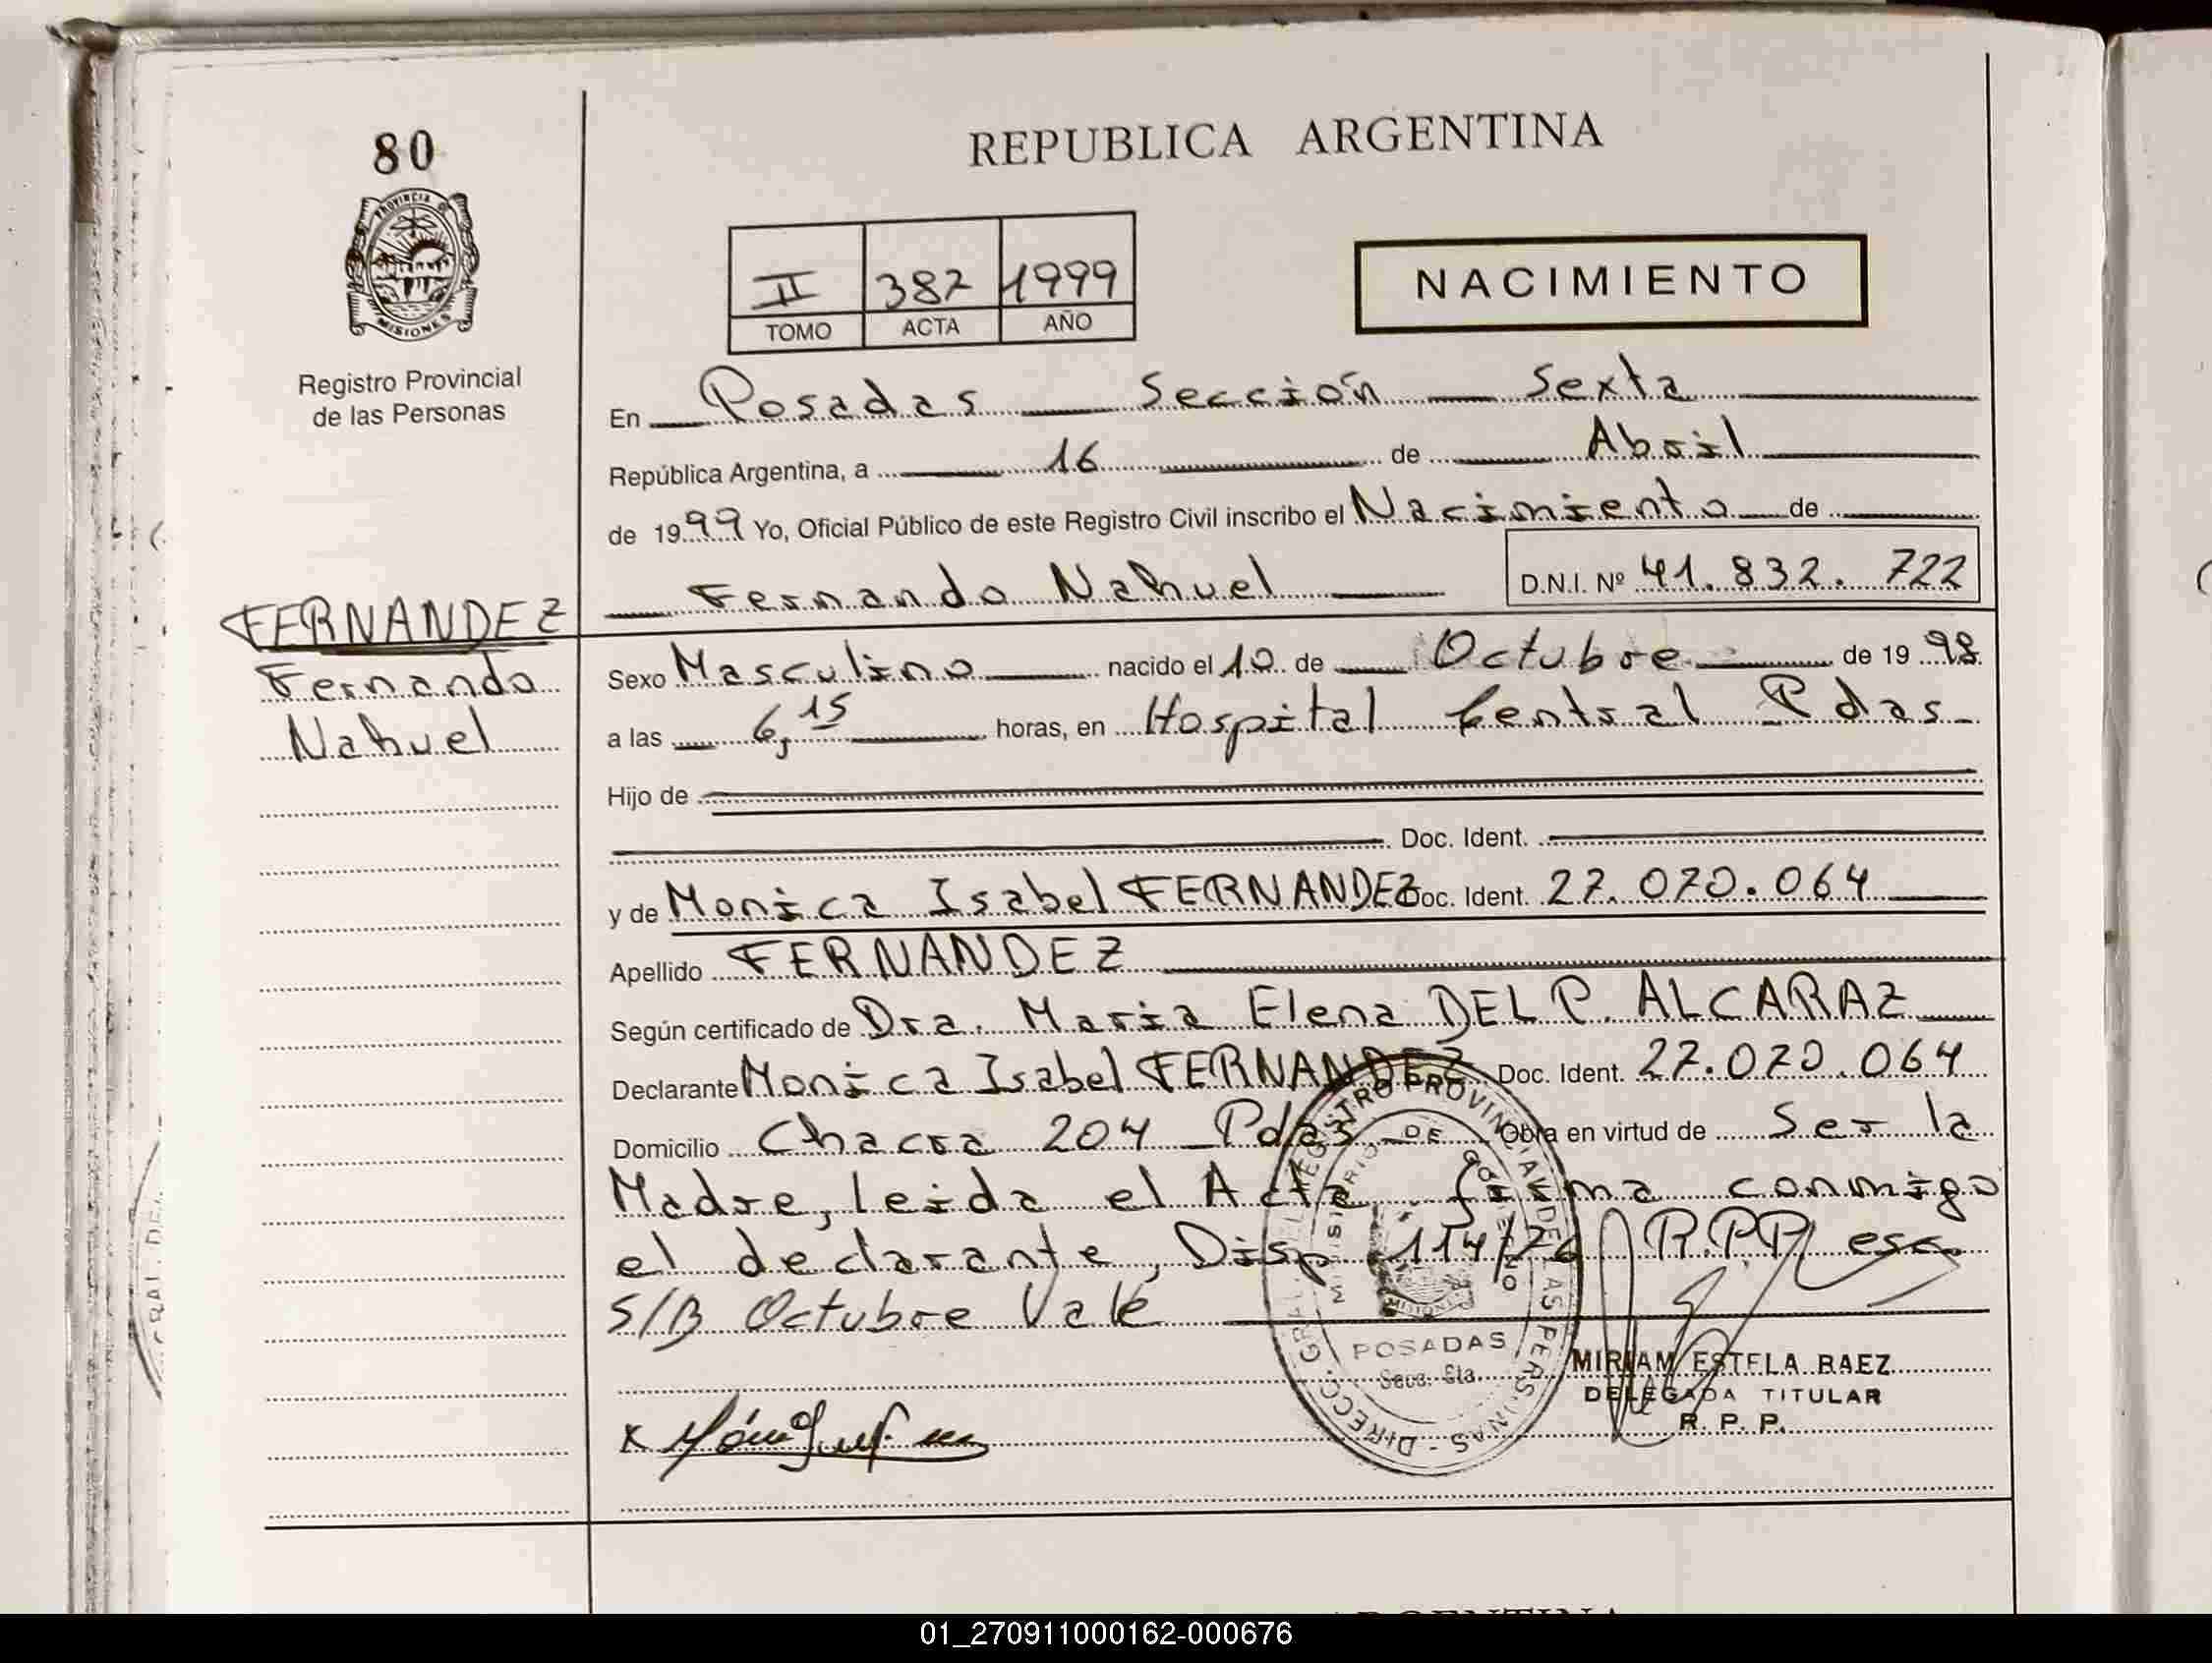 80
REPUBLICA ARGENTINA
PROVINCIA DE
MISIONES
II 387 1999
TOMO ACTA AÑO
NACIMIENTO
Registro Provincial
de las Personas
En Posadas Sección Sexta
República Argentina, a 16 de Abril
de 1999 Yo, Oficial Público de este Registro Civil inscribo el Nacimiento de
Fernando Nahuel D.N.I. Nº 41.832.722
FERNANDEZ
Fernando
Nahuel
Sexo Masculino nacido el 10 de Octubre de 1998
a las 6,15 horas, en Hospital Central Pdas
Hijo de
Doc. Ident.
y de Monica Isabel FERNANDEZ Doc. Ident. 27.070.064
Apellido FERNANDEZ
Según certificado de Dra. Maria Elena DEL P. ALCARAZ
Declarante Monica Isabel FERNANDEZ Doc. Ident. 27.070.064
Domicilio Chacra 204 Pdas Obra en virtud de Ser la
Madre, leida el Acta firma conmigo
el declarante, Disp 114/76 R.P.P.
S/B Octubre Vale
DIRECC. GRAL. DEL REGISTRO PROVINCIAL DE LAS PERSONAS
MINISTERIO DE GOBIERNO
MISIONES
POSADAS
Secc. 6ta.
MIRIAM ESTELA BAEZ
DELEGADA TITULAR
R. P. P.
01_270911000162-000676